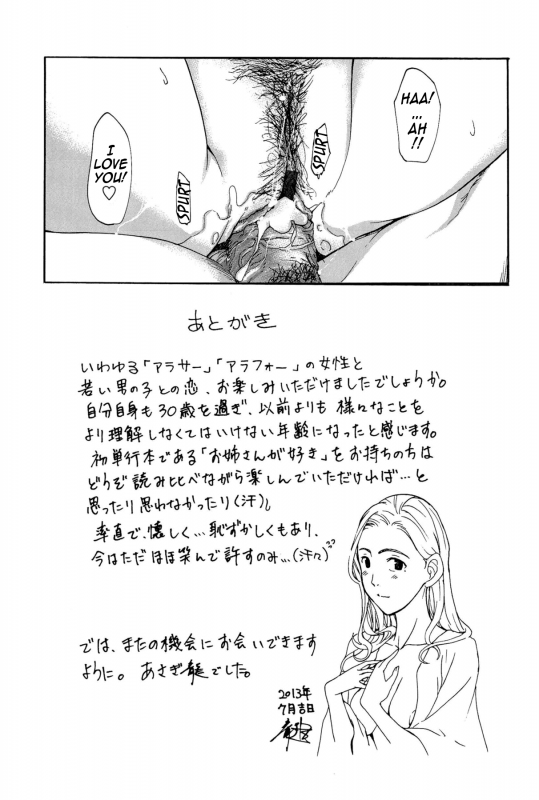 HAA!
...
AH
!!
SPURT
SPURT
I
LOVE
YOU!
♡
あとがき
いわゆる「アラサー」「アラフォー」の女性と
若い男の子との恋、お楽しみいただけましたでしょうか。
自分自身も30歳を過ぎ、以前よりも様々なことを
より理解しなくてはいけない年齢になったと感じます。
初単行本である「お姉さんが好き」をお持ちの方は
どうぞ読み比べながら楽しんでいただければ…と
思ったり思わなかったり(汗)。
率直で、懐しく…恥ずかしくもあり、
今はただほほ笑んで許すのみ…(汗々)
では、またの機会にお会いできます
ように。あさぎ龍でした。
2013年
7月吉日